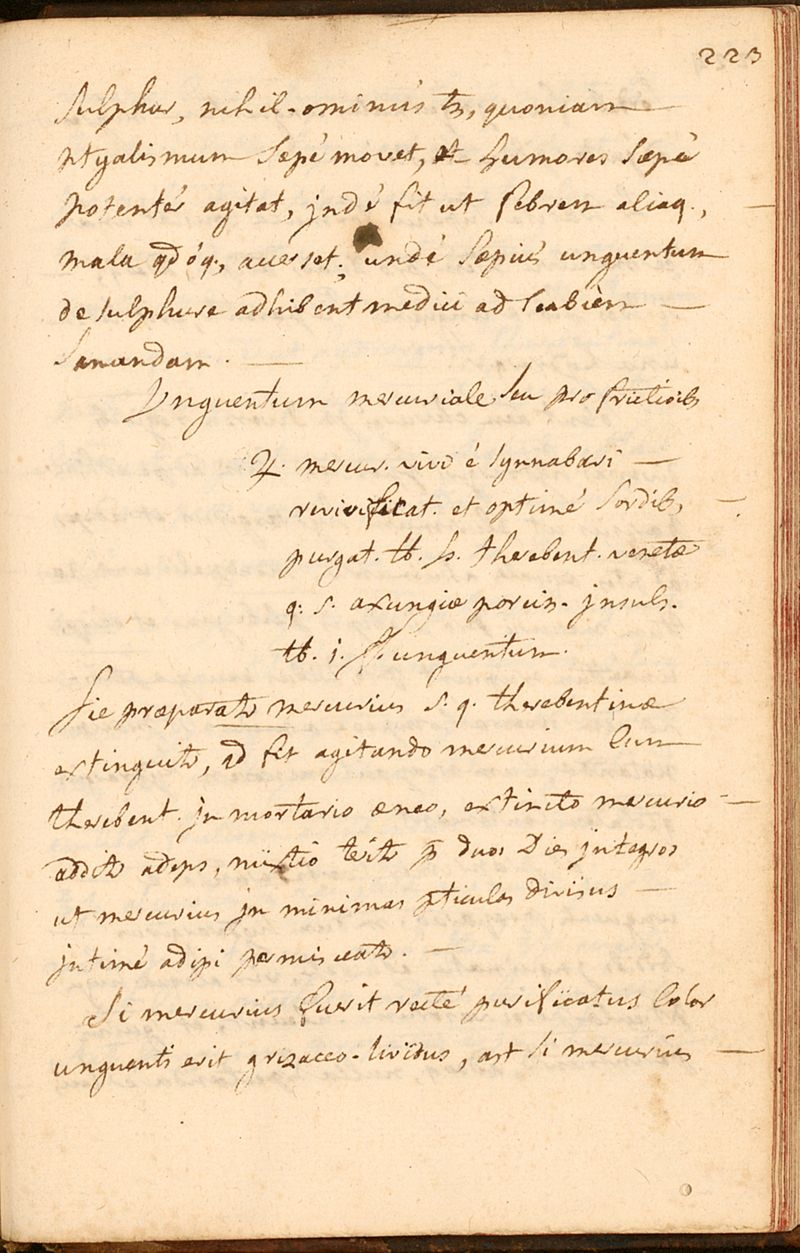 223
Sulphur, nihil-ominus tn, quoniam
ptyalismum sæpè movet, et humores sæpè
potentèr agitat, jndè fit ut febrem aliaq.,
mala qdóq., avertet; undè sæpiùs unguentum
de sulphure adhibent medici ad scabièm
Sanandam.
Unguentum mercuriale seu pro frictioib
♃. mercur. vivi è Cynnabari
revivificat. et optimè sordib,
purgat. ℔. ß. therebent. venetæ
q. s. axungiæ porcin. jnsuls.
℔. j. f. unguentum.
Sic præparatr mercurius s. q. therebentinæ
extinguitr, id fit agitando mercurium cum
therebent. jn mortario æneo, extincto mercurio
additr adeps, mixtio teritr p duos dies jntegros
ut mercurius jn minimas pticulas divisus
jntimè adipi permisceatr.
Si mercurius fuerit rectè purificatus color
unguenti erit grizaceo-lividus, ast si mercurius